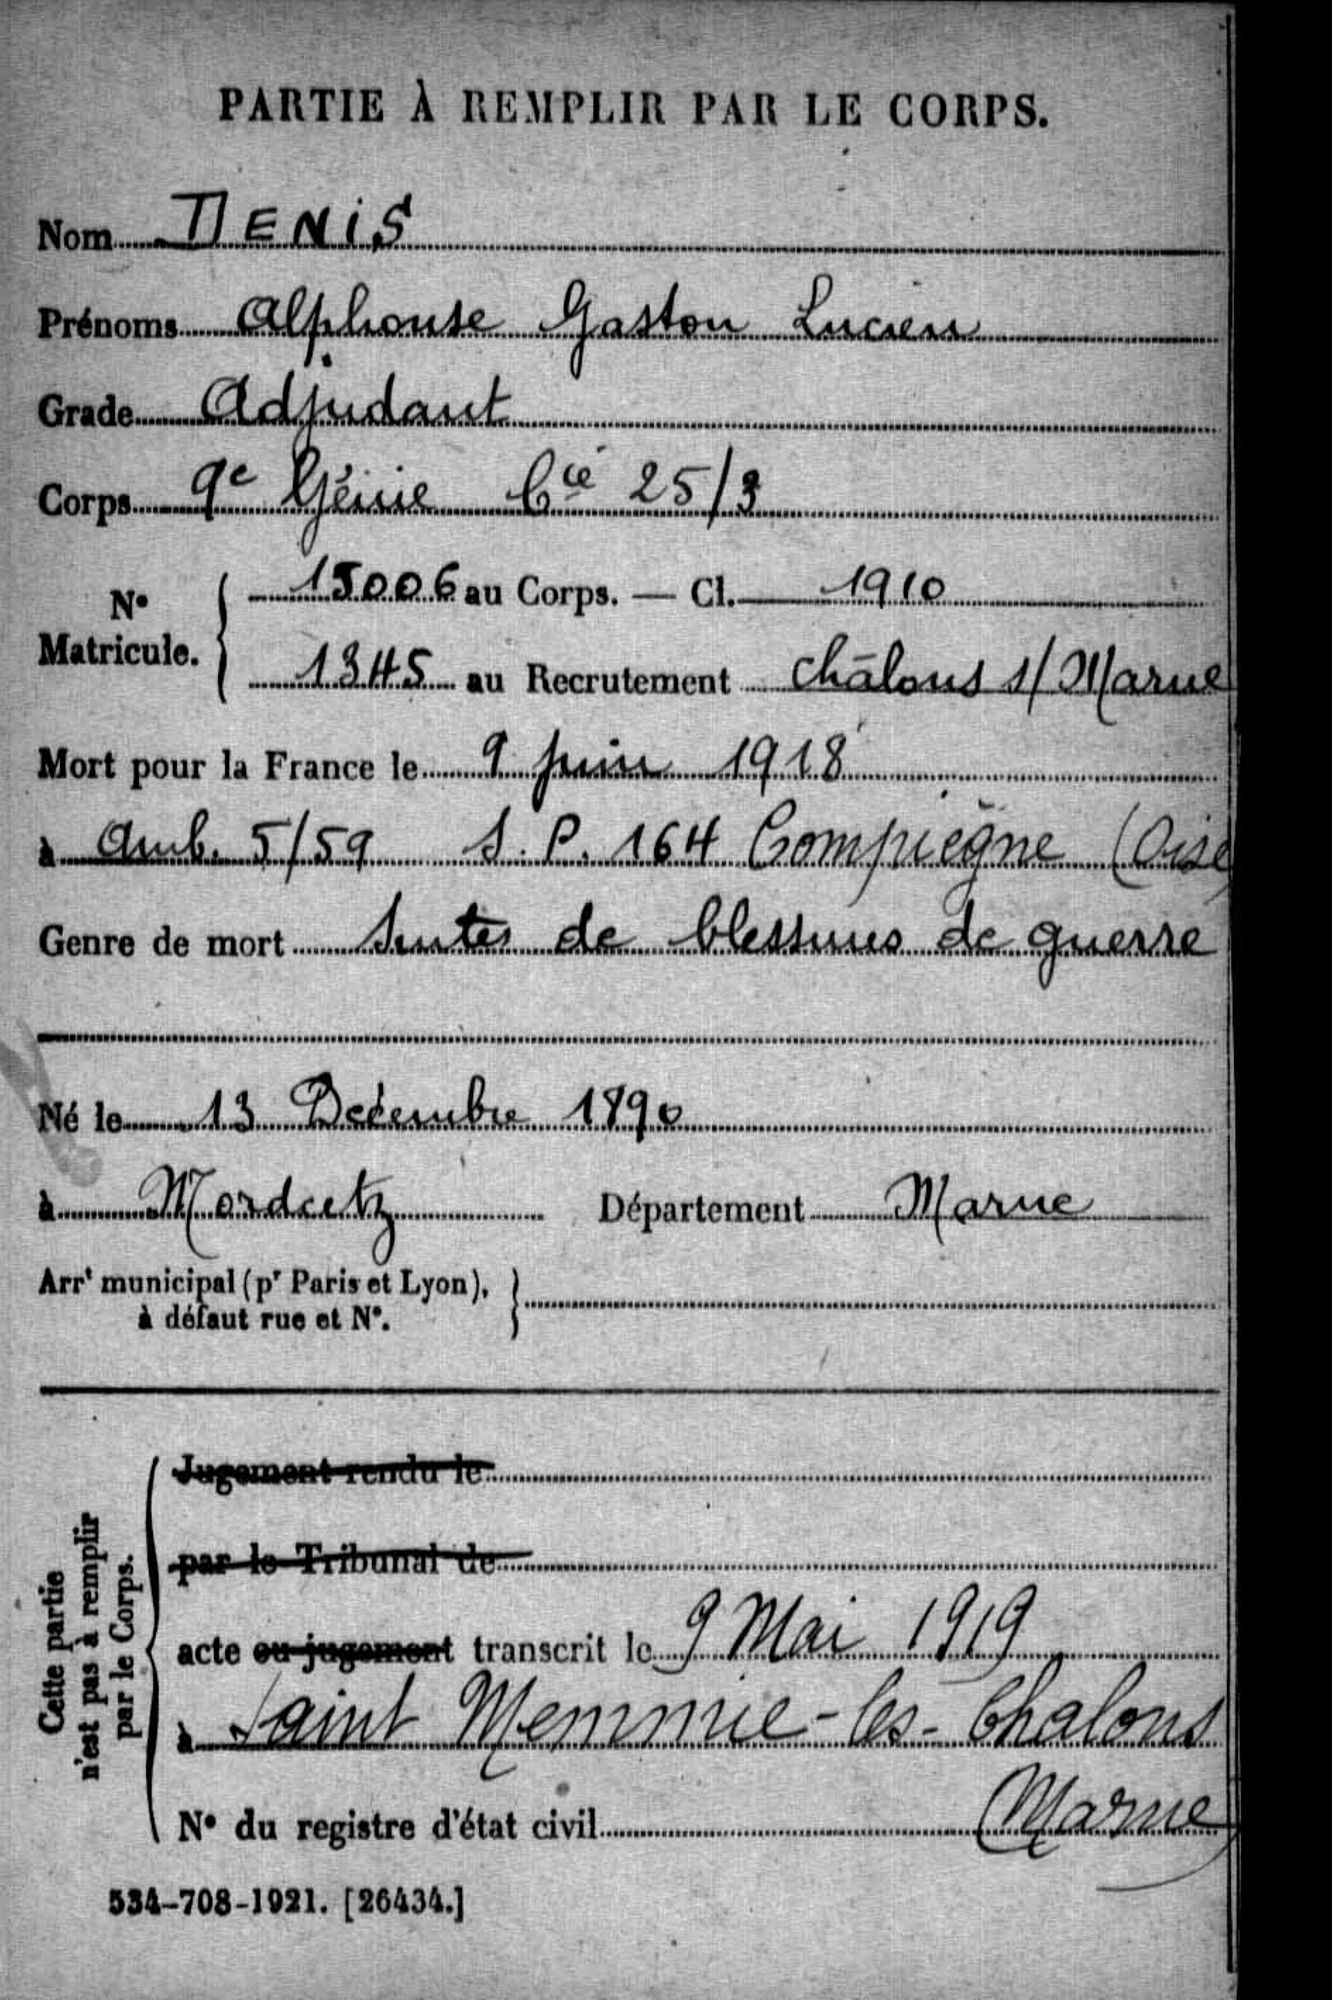 PARTIE À REMPLIR PAR LE CORPS.
Nom DENIS
Prénoms Alphonse Gaston Lucien
Grade Adjudant
Corps 9e Génie Cie 25/3
No Matricule. { 15006 au Corps. — Cl. 1910
1345 au Recrutement Châlons s/Marne
Mort pour la France le 9 Juin 1918
à Amb. 5/59 S.P. 164 Compiègne (Oise)
Genre de mort Suites de blessures de guerre
Né le 13 Décembre 1890
à Département Marne
Arrt municipal (pr Paris et Lyon),
à défaut rue et No.
Cette partie
n'est pas à remplir
par le Corps.
Jugement rendu le
par le Tribunal de
acte ou jugement transcrit le 9 Mai 1919
à Saint Memmie-les-Chalons
No du registre d'état civil Marne
534-708-1921. [26434.]